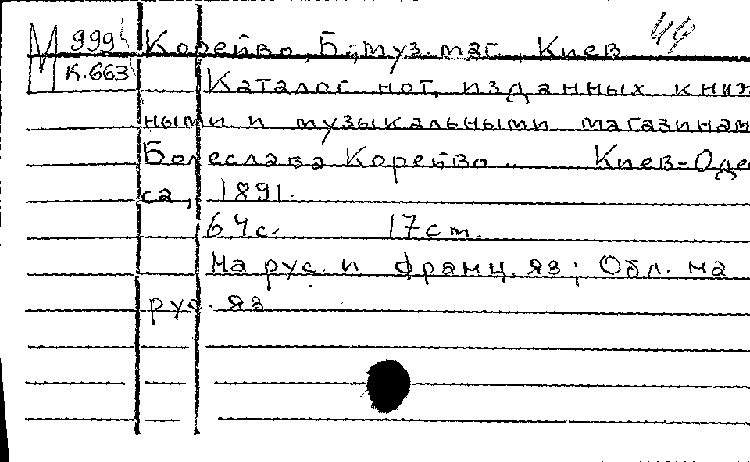 М 999 Корейво, Б., муз. маг., Киев 49
К.663
Каталог нот, изданных книж
ными и музыкальными магазинам
Болеслава Корейво .. Киев-Одес
са, 1891.
64 с. 17 cm.
На рус. и франц. яз; Обл. на
рус. яз